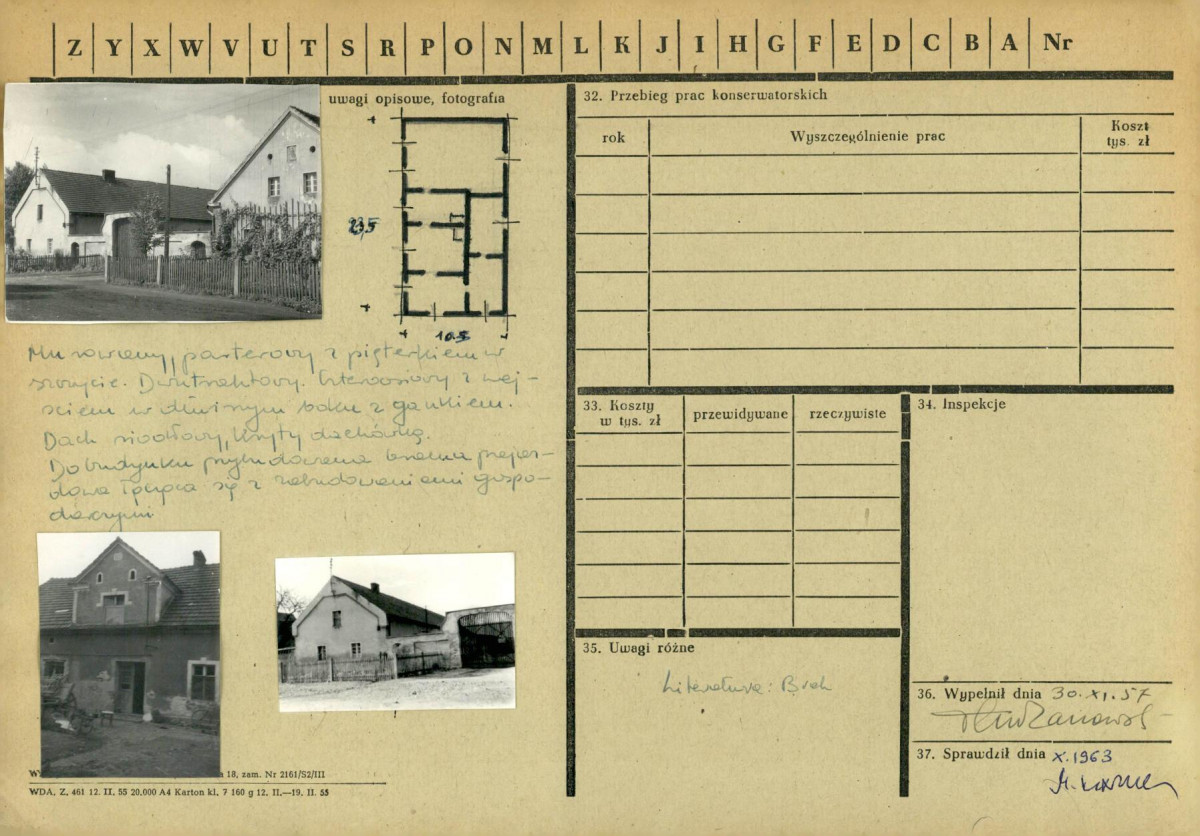 Z Y X W V U T S R P O N M L K J I H G F E D C B A Nr
uwagi opisowe, fotografia
23,5
10.5
Murowany, parterowy z pięterkiem w
szczycie. Dwutraktowy. z wej-
ściem w dłuższym boku z gankiem.
Dach siodłowy, kryty dachówką.
Do budynku przybudowana brama przejaz-
dowa łącząca się z zabudowaniami gospo-
darczymi
a 18, zam. Nr 2161/S2/III
WDA. Z. 461 12. II. 55 20.000 A4 Karton kl. 7 160 g 12. II.—19. II. 55
32. Przebieg prac konserwatorskich
rok Wyszczególnienie prac Koszt
tys. zł
33. Koszty
w tys. zł przewidywane rzeczywiste
34. Inspekcje
35. Uwagi różne
Literatura: Brak
36. Wypełnił dnia 30.XI.57
37. Sprawdził dnia X.1963